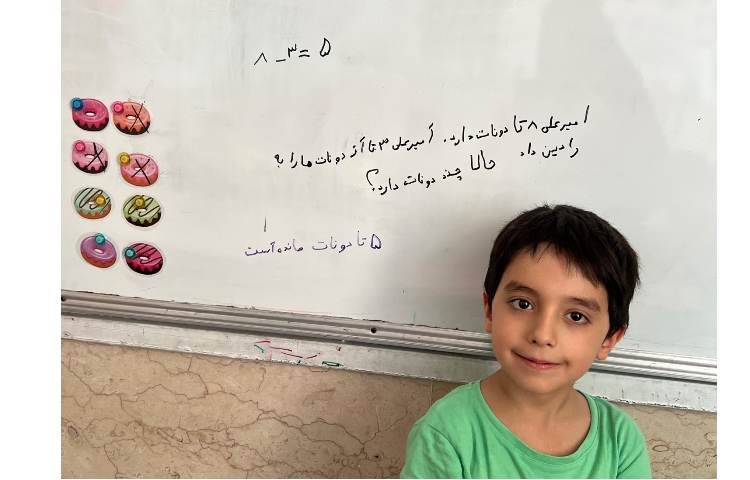 ۸ - ۳ = ۵
امیرعلی ۸ تا دونات دارد. امیرعلی ۳ تا از دونات ها را به
رادین داد حالا چند دونات دارد؟
۵ تا دونات مانده است